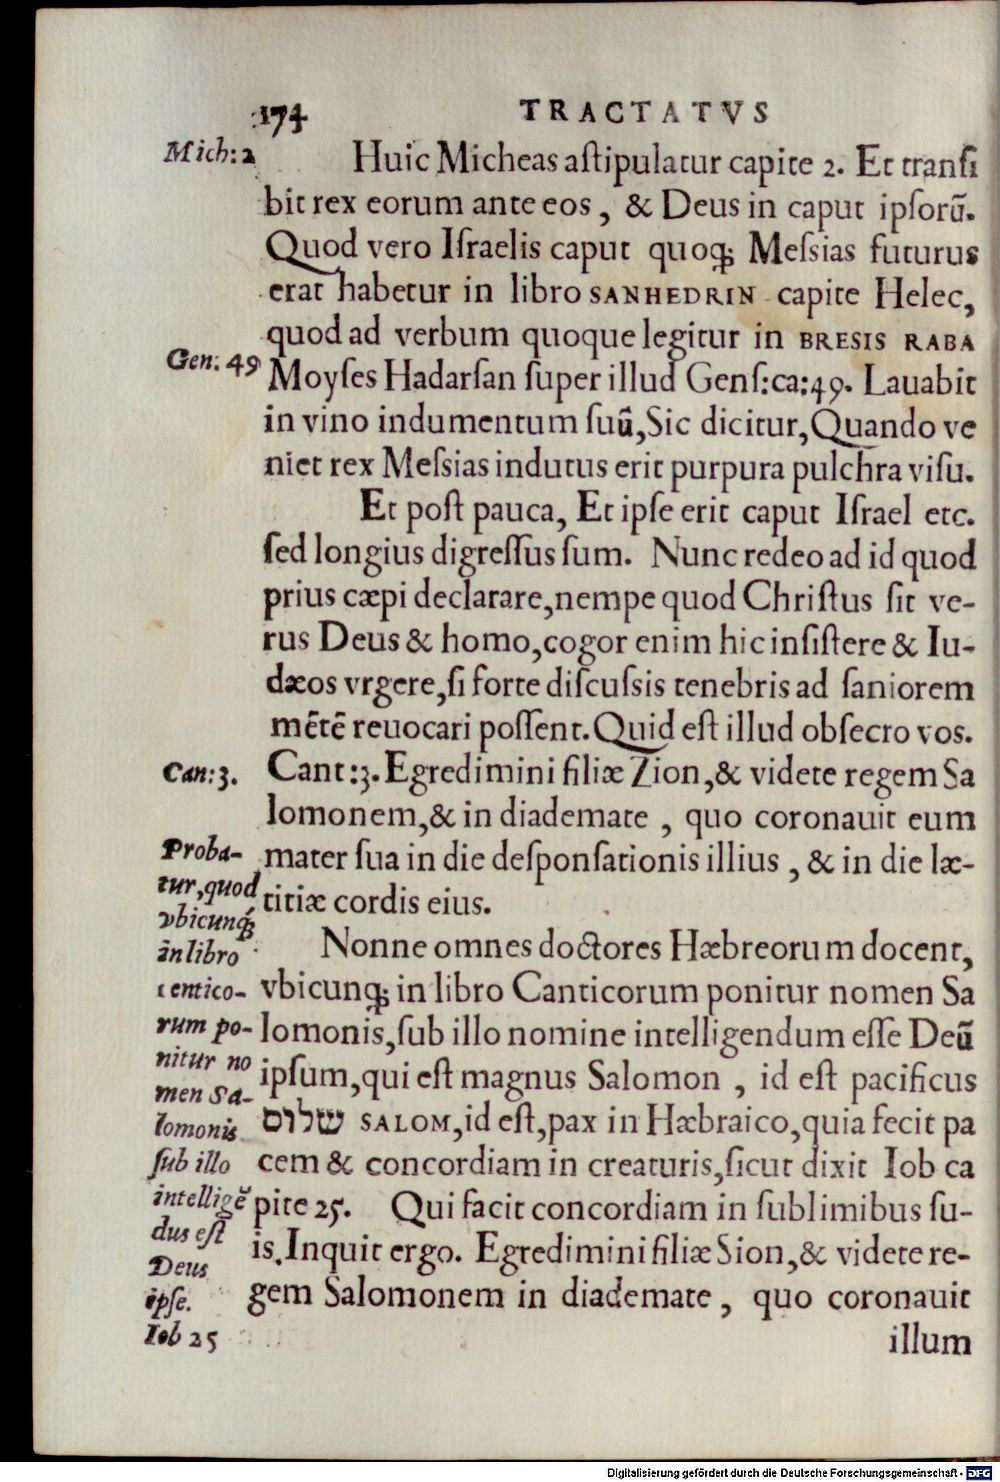 174 TRACTATVS
Mich: 2
Huic Micheas aſtipulatur capite 2. Et tranſi
bit rex eorum ante eos, & Deus in caput ipſorū.
Quod vero Iſraelis caput quoq; Meſsias futurus
erat habetur in libro SANHEDRIN capite Helec,
quod ad verbum quoque legitur in BRESIS RABA
Gen: 49
Moyſes Hadarſan ſuper illud Genſ:ca:49. Lauabit
in vino indumentum ſuū, Sic dicitur, Quando ve
niet rex Meſsias indutus erit purpura pulchra viſu.
Et poſt pauca, Et ipſe erit caput Iſrael etc.
ſed longius digreſſus ſum. Nunc redeo ad id quod
prius cæpi declarare, nempe quod Chriſtus ſit ve-
rus Deus & homo, cogor enim hic inſiſtere & Iu-
dæos vrgere, ſi forte diſcuſsis tenebris ad ſaniorem
mētē reuocari poſſent. Quid eſt illud obſecro vos.
Can: 3.
Cant:3. Egredimini filiæ Zion, & videte regem Sa
lomonem, & in diademate, quo coronauit eum
mater ſua in die deſponſationis illius, & in die læ-
titiæ cordis eius.
Proba-
tur, quod
vbicunq;
in libro
centico-
rum po-
nitur no
men Sa-
lomonis
ſub illo
intelligē
dus eſt
Deus
ipſe.
Nonne omnes doctores Hæbreorum docent,
vbicunq; in libro Canticorum ponitur nomen Sa
lomonis, ſub illo nomine intelligendum eſſe Deū
ipſum, qui eſt magnus Salomon, id eſt pacificus
שלום SALOM, id eſt, pax in Hæbraico, quia fecit pa
cem & concordiam in creaturis, ſicut dixit Iob ca
pite 25. Qui facit concordiam in ſublimibus ſu-
is. Inquit ergo. Egredimini filiæ Sion, & videte re-
gem Salomonem in diademate, quo coronauit
Iob 25
illum
Digitalisierung gefördert durch die Deutsche Forschungsgemeinschaft - DFG